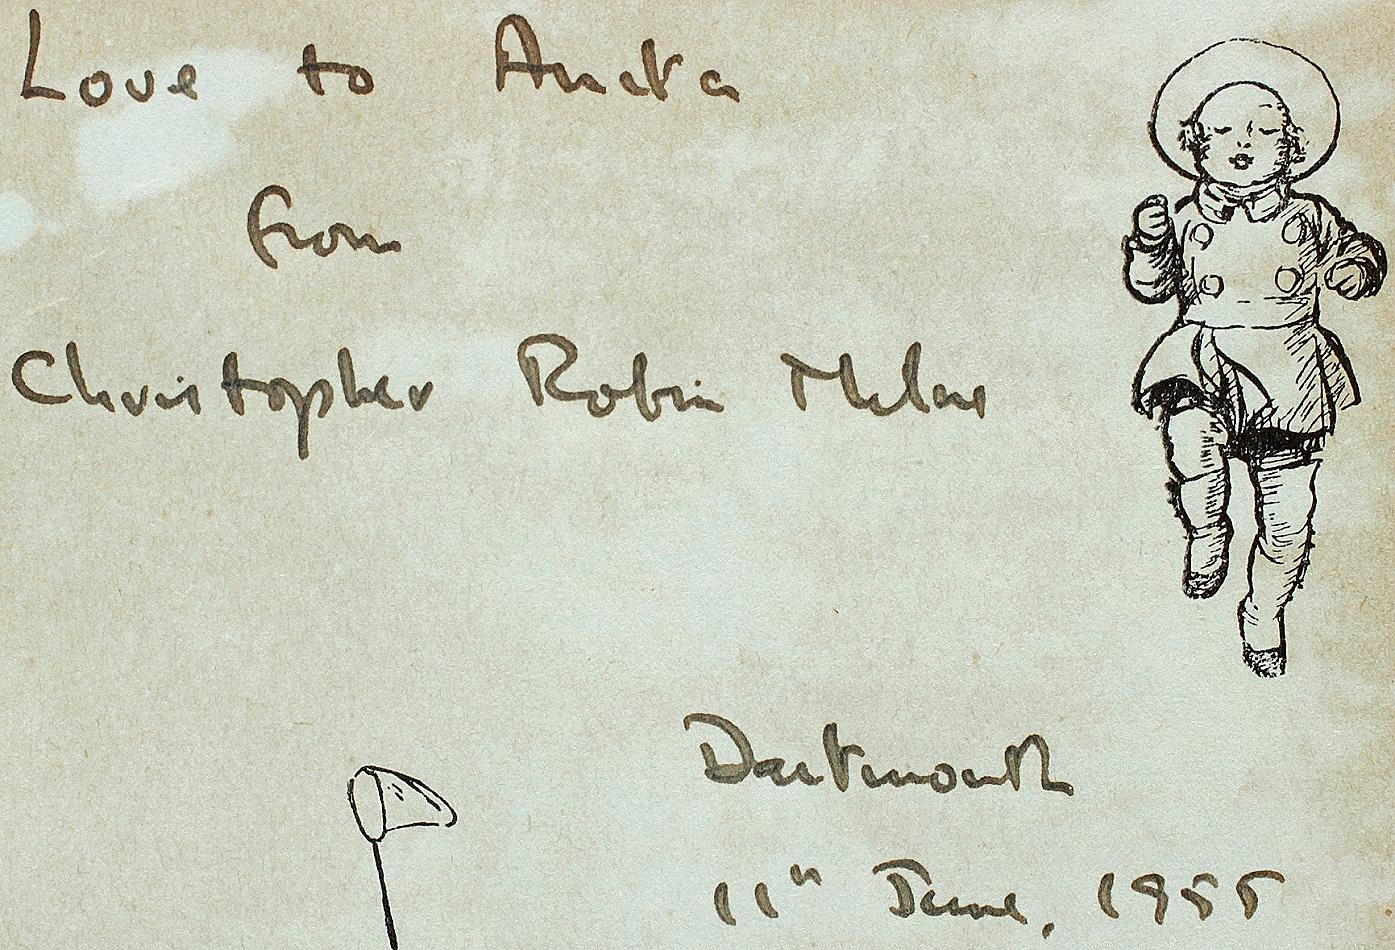 Love to Anita
from
Christopher Robin Milne
Dartmouth
11th June, 1955